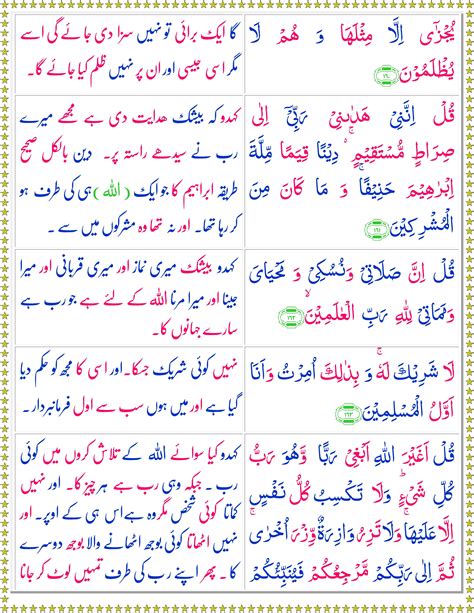 يُجْزٰٓى اِلَّا مِثْلَهَا وَ هُمْ لَا
يُظْلَمُوْنَ ١٦٠
گا ایک برائی تو نہیں سزا دی جائے گی اسے
مگر اسی جیسی اور ان پر نہیں ظلم کیا جائے گا۔
قُلْ اِنَّنِيْ هَدٰىنِيْ رَبِّيْٓ اِلٰى
صِرَاطٍ مُّسْتَقِيْمٍ ۚ دِيْنًا قِيَمًا مِّلَّةَ
اِبْرٰهِيْمَ حَنِيْفًا ۚ وَ مَا كَانَ مِنَ
الْمُشْرِكِيْنَ ١٦١
کہدو کہ بیشک ہدایت دی ہے مجھے میرے
رب نے سیدھے راستہ پر۔ دین بالکل صحیح
طریقہ ابراہیم کا جو ایک (اللہ) ہی کی طرف ہو
کر رہا تھا۔ اور نہ تھا وہ مشرکوں میں سے۔
قُلْ اِنَّ صَلَاتِيْ وَنُسُكِيْ وَ مَحْيَايَ
وَمَمَاتِيْ لِلّٰهِ رَبِّ الْعٰلَمِيْنَ ۙ ١٦٢
کہدو بیشک میری نماز اور میری قربانی اور میرا
جینا اور میرا مرنا اللہ کے لئے ہے جو رب ہے
سارے جہانوں کا۔
لَا شَرِيْكَ لَهٗ ۚ وَ بِذٰلِكَ اُمِرْتُ وَ اَنَا
اَوَّلُ الْمُسْلِمِيْنَ ١٦٣
نہیں کوئی شریک جسکا۔ اور اسی کا مجھ کو حکم دیا
گیا ہے اور میں ہوں سب سے اول فرمانبردار۔
قُلْ اَغَيْرَ اللّٰهِ اَبْغِيْ رَبًّا وَّهُوَ رَبُّ
كُلِّ شَيْءٍ ؕ وَلَا تَكْسِبُ كُلُّ نَفْسٍ
اِلَّا عَلَيْهَا ۚ وَلَا تَزِرُ وَازِرَةٌ وِّزْرَ اُخْرٰى ۚ
ثُمَّ اِلٰى رَبِّكُمْ مَّرْجِعُكُمْ فَيُنَبِّئُكُمْ
کہدو کیا سوائے اللہ کے تلاش کروں میں کوئی
رب۔ جبکہ وہی رب ہے ہر چیز کا۔ اور نہیں
کماتا کوئی شخص مگر وہ ہے اس ہی کے اوپر۔ اور
نہیں اٹھاتا کوئی بوجھ اٹھانے والا بوجھ دوسرے
کا۔ پھر اپنے رب کی طرف تمہیں لوٹ کر جانا